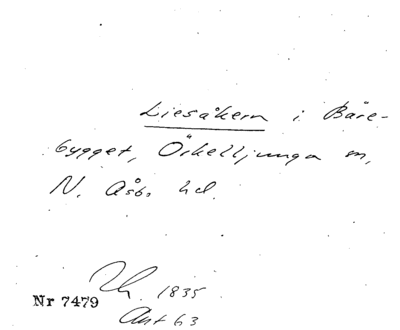 Liesåkern i Bäre-
bygget, Örkelljunga m,
N. Åsbo hd.
1835
Nr 7479
Akt 63